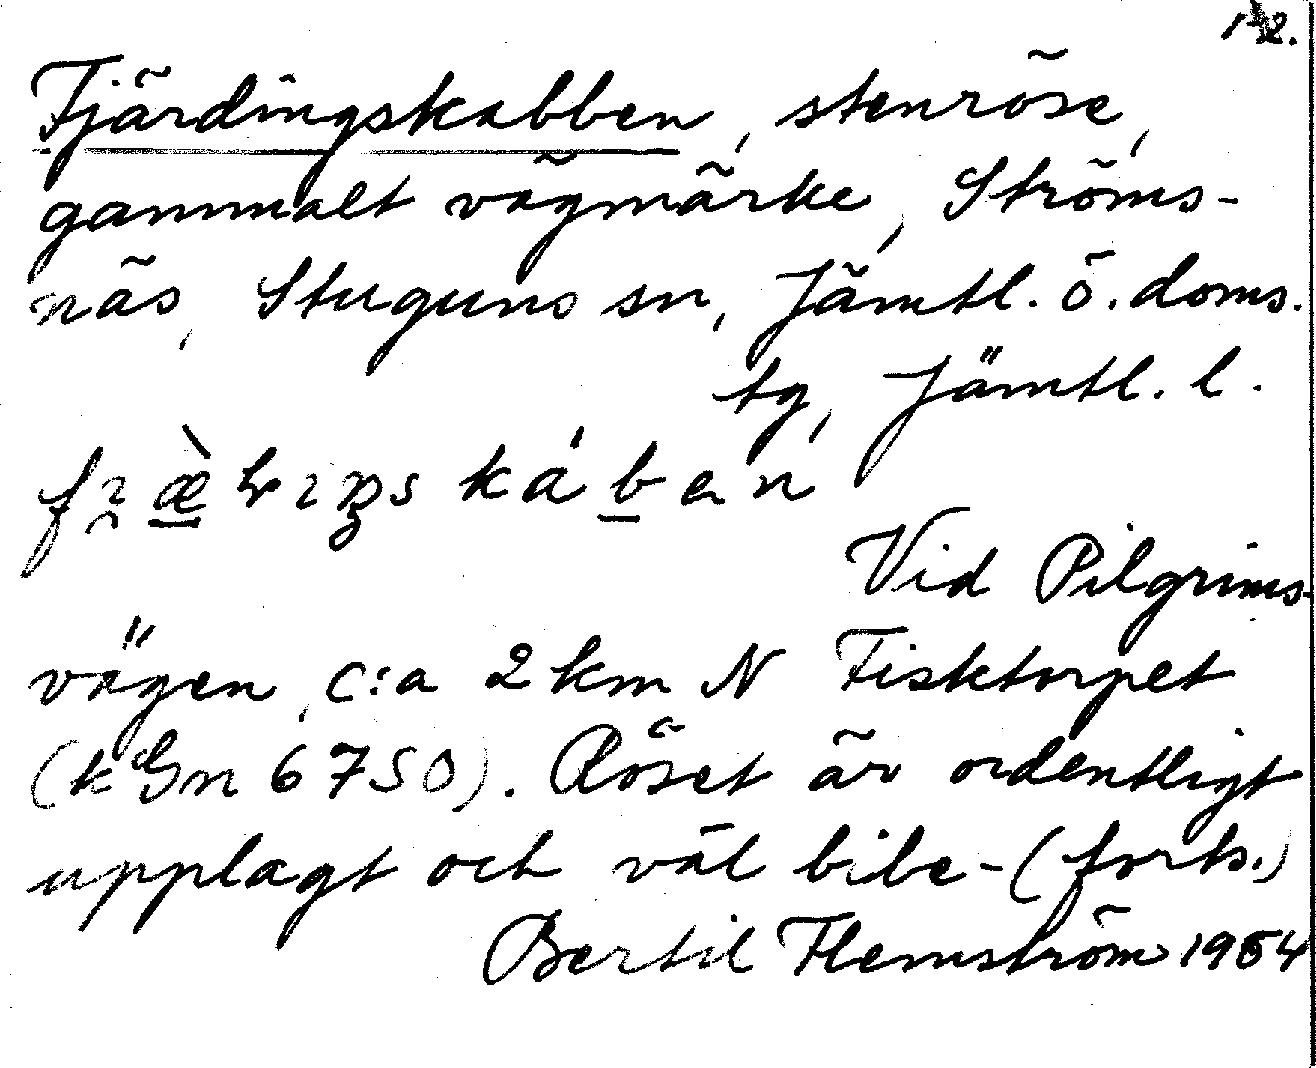 1-2.
Fjärdingskabben, stenröse,
gammalt vägmärke, Ströms-
näs, Stuguns sn, Jämtl. ö. doms.
tg, Jämtl. l.
Vid Pilgrims-
vägen, c:a 2 km N Fisktorpet
(k Gn 6750). Röset är ordentligt
upplagt och väl bibe- (forts.)
Bertil Flemström 1964